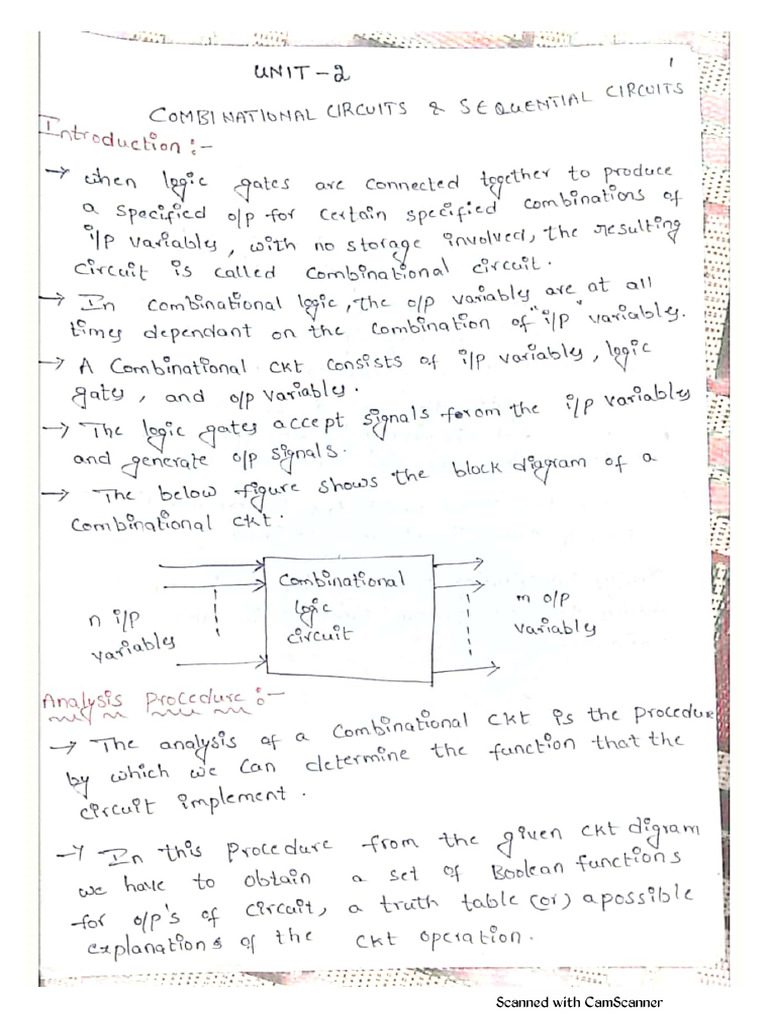 1
UNIT-2
COMBINATIONAL CIRCUITS & SEQUENTIAL CIRCUITS
Introduction:-
→ when logic gates are connected together to produce
a specified o/p for certain specified combinations of
i/p variables, with no storage involved, the resulting
circuit is called combinational circuit.
→ In combinational logic, the o/p variables are at all
times dependant on the combination of "i/p" variables.
→ A combinational ckt consists of i/p variables, logic
gates, and o/p variables.
→ The logic gates accept signals from the i/p variables
and generate o/p signals.
→ The below figure shows the block diagram of a
combinational ckt.
n i/p
variables
Combinational
logic
circuit
m o/p
variables
Analysis Procedure:-
→ The analysis of a combinational ckt is the procedure
by which we can determine the function that the
circuit implement.
→ In this procedure from the given ckt digram
we have to obtain a set of Boolean functions
for o/p's of circuit, a truth table (or) a possible
explanations of the ckt operation.
Scanned with CamScanner